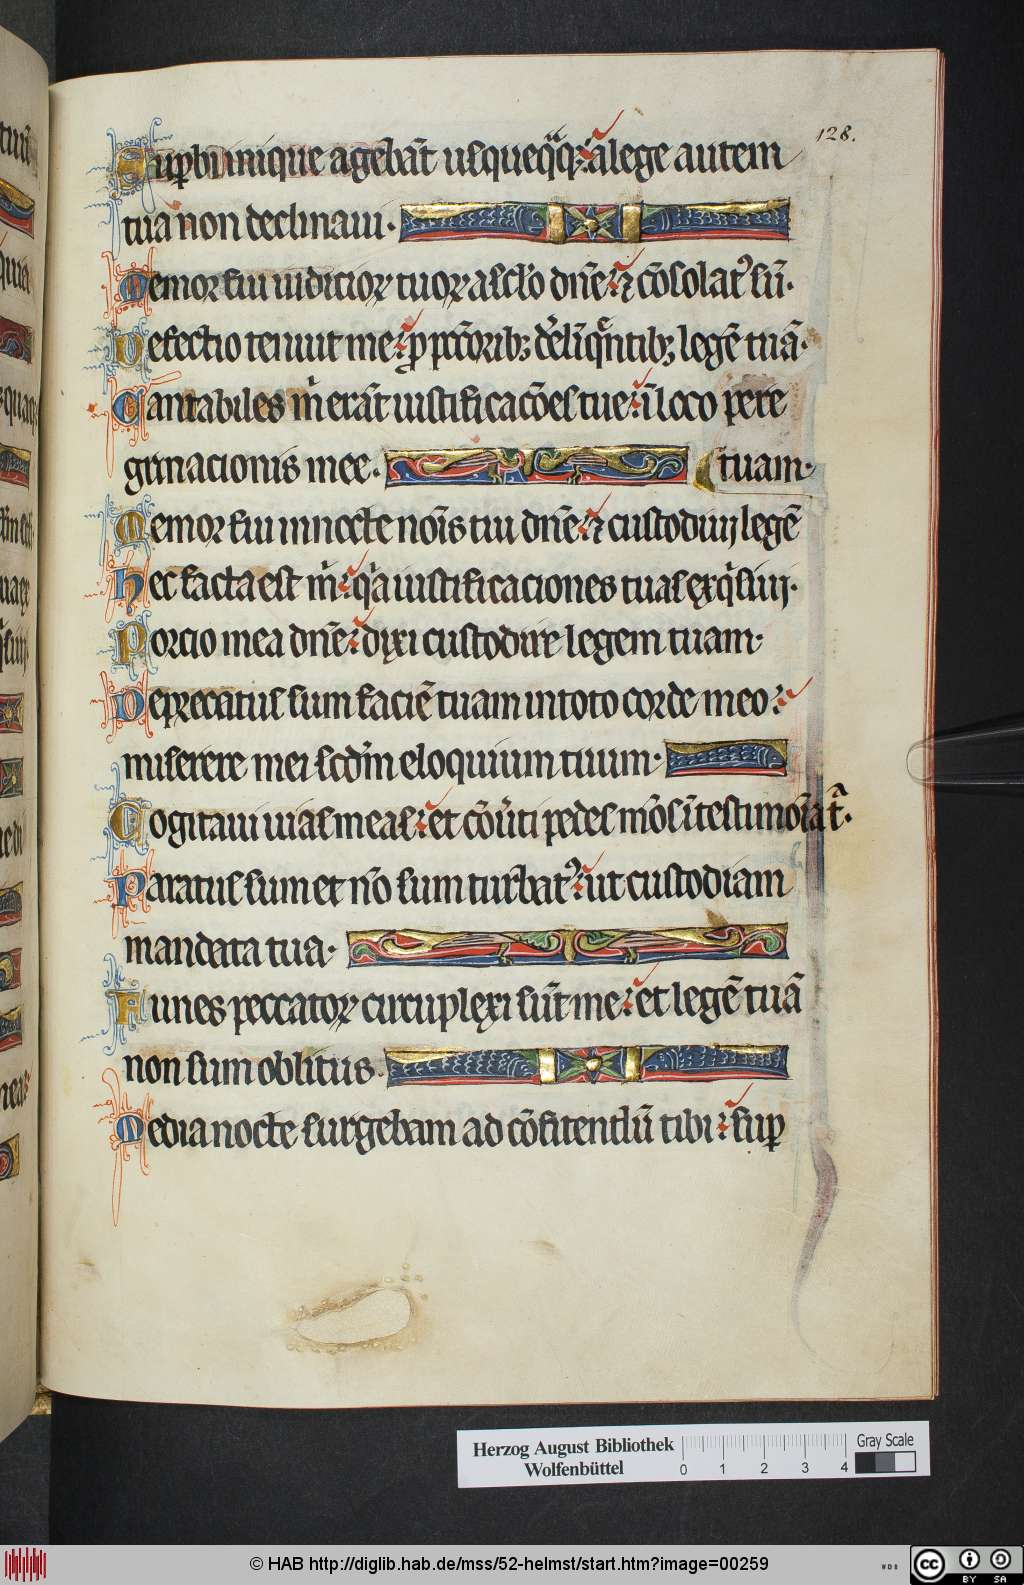 128.
Suꝑbi inique agebāt usquequaq; a lege autem
tua non declinaui.
Memor fui iudicioꝝ tuoꝝ a sclo dn̄e ⁊ cōsolatꝰ sū.
Defectio tenuit me ꝓ pctōribꝫ derelinquentibꝫ legē tuā.
Cantabiles m̄ erāt iustificacōes tue ī loco pere
grinacionis mee. tuam.
Memor fui in nocte nōis tui dn̄e ⁊ custodiuj legē
hec facta est m̄ qͣa iustificaciones tuas exqͥsiuj.
Porcio mea dn̄e dixi custodire legem tuam.
Deprecatus sum faciē tuam in toto corde meo
miserere mei scdm̄ eloquium tuum.
Cogitaui uias meas et cōuti pedes mōs ī testimōia t̄.
Paratus sum et nō sum turbatꝰ ut custodiam
mandata tua.
Funes peccatoꝝ circuplexi sūt me et legē tuā
non sum oblitus.
Media nocte surgebam ad cōfitendū tibi suꝑ
Herzog August Bibliothek
Wolfenbüttel
0 1 2 3 4
Gray Scale
© HAB http://diglib.hab.de/mss/52-helmst/start.htm?image=00259
WDB
cc BY SA